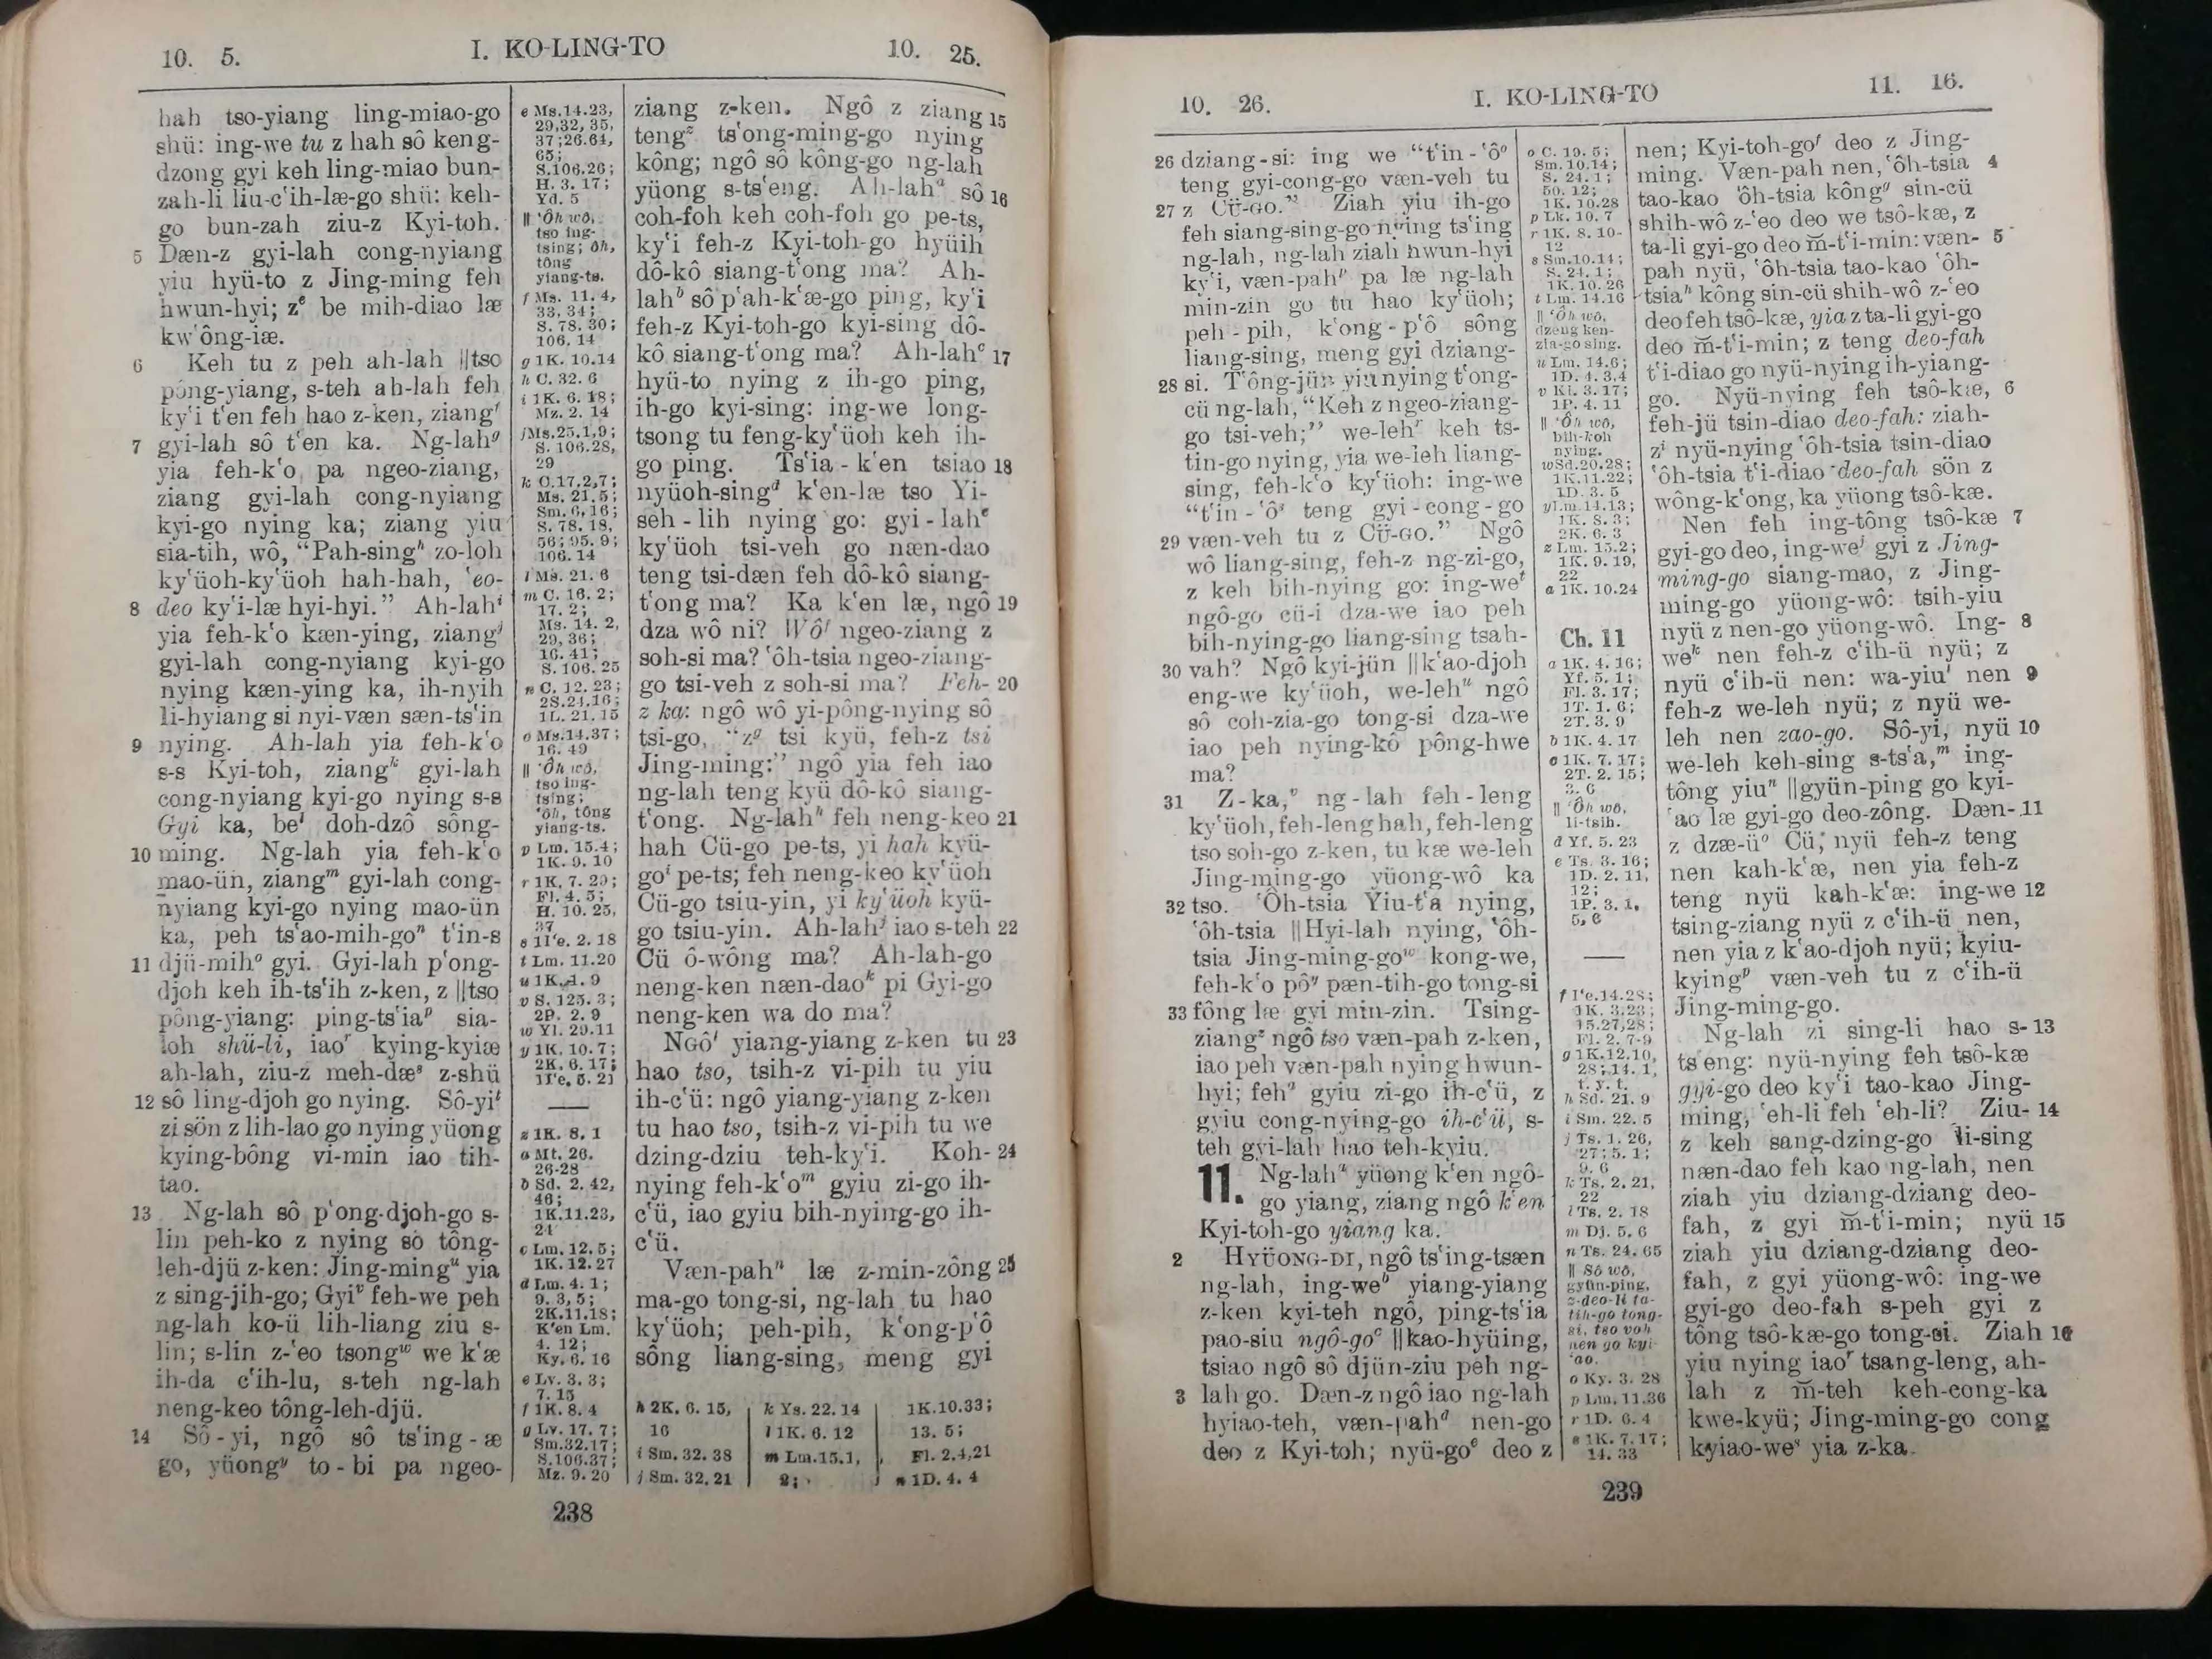 10. 5.
I. KO-LING-TO
10. 25.
hah tso-yiang ling-miao-go
shü: ing-we tu z hah sô keng-
dzong gyi keh ling-miao bun-
zah-li liu-c‘ih-læ-go shü: keh-
go bun-zah ziu-z Kyi-toh.
5 Dæn-z gyi-lah cong-nyiang
yiu hyü-to z Jing-ming feh
hwun-hyi; zᵉ be mih-diao læ
kw‘ông-iæ.
6 Keh tu z peh ah-lah ||tso
pông-yiang, s-teh ah-lah feh
ky‘i t‘en feh hao z-ken, ziangᶠ
7 gyi-lah sô t‘en ka. Ng-lahᵍ
yia feh-k‘o pa ngeo-ziang,
ziang gyi-lah cong-nyiang
kyi-go nying ka; ziang yiu
sia-tih, wô, “Pah-singʰ zo-loh
ky‘üoh-ky‘üoh hah-hah, ‘eo-
8 deo ky‘i-læ hyi-hyi.” Ah-lahⁱ
yia feh-k‘o kæn-ying, ziangʲ
gyi-lah cong-nyiang kyi-go
nying kæn-ying ka, ih-nyih
li-hyiang si nyi-væn sæn-ts‘in
9 nying. Ah-lah yia feh-k‘o
s-s Kyi-toh, ziangᵏ gyi-lah
cong-nyiang kyi-go nying s-s
Gyi ka, beˡ doh-dzô sông-
10 ming. Ng-lah yia feh-k‘o
mao-ün, ziangᵐ gyi-lah cong-
nyiang kyi-go nying mao-ün
ka, peh ts‘ao-mih-goⁿ t‘in-s
11 djü-mihᵒ gyi. Gyi-lah p‘ong-
djoh keh ih-ts‘ih z-ken, z ||tso
pông-yiang: ping-ts‘iaᵖ sia-
loh shü-li, iaoʳ kying-kyiæ
ah-lah, ziu-z meh-dæˢ z-shü
12 sô ling-djoh go nying. Sô-yiᵗ
zi sön z lih-lao go nying yüong
kying-bông vi-min iao tih-
tao.
13 Ng-lah sô p‘ong-djoh-go s-
lin peh-ko z nying sô tông-
leh-djü z-ken: Jing-mingᵘ yia
z sing-jih-go; Gyiᵛ feh-we peh
ng-lah ko-ü lih-liang ziu s-
lin; s-lin z-‘eo tsongʷ we k‘æ
ih-da c‘ih-lu, s-teh ng-lah
neng-keo tông-leh-djü.
14 Sô-yi, ngô sô ts‘ing-æ
go, yüongʸ to-bi pa ngeo-
e Ms.14.23,
29,32, 35,
37;26.64,
65;
S.106.26;
H. 3. 17;
Yd. 5
|| ‘Ôh wô,
tso ing-
tsing; ôh,
tông
yiang-ts.
f Ms. 11. 4,
33, 34;
S. 78. 30;
106. 14
g 1K. 10.14
h C. 32. 6
i 1K. 6. 18;
Mz. 2. 14
j Ms.25.1,9;
S. 106.28,
29
k C.17.2,7;
Ms. 21. 5;
Sm. 6, 16;
S. 78. 18,
56; 95. 9;
106. 14
l Ms. 21. 6
m C. 16. 2;
17. 2;
Ms. 14. 2,
29, 36;
16. 41;
S. 106. 25
n C. 12. 23;
2S.24.16;
1L. 21. 15
o Ms.14.37;
16. 49
|| ‘Ôh wô,
tso ing-
tsing;
‘ôh, tông
yiang-ts.
p Lm. 15.4;
1K. 9. 10
r 1K. 7. 29;
Fl. 4. 5;
H. 10. 25,
37
s 1I‘e. 2. 18
t Lm. 11.20
u 1K. 1. 9
v S. 125. 3;
2P. 2. 9
w Yl. 29.11
y 1K. 10. 7;
2K. 6. 17;
1I‘e. 5. 21
z 1K. 8. 1
a Mt. 26.
26-28
b Sd. 2. 42,
46;
1K.11.23,
24
c Lm. 12. 5;
1K. 12. 27
d Lm. 4. 1;
9. 3, 5;
2K.11.18;
K‘en Lm.
4. 12;
Ky. 6. 16
e Lv. 3. 3;
7. 15
f 1K. 8. 4
g Lv. 17. 7;
Sm.32.17;
S.106.37;
Mz. 9. 20
ziang z-ken. Ngô z ziang 15
tengᶻ ts‘ong-ming-go nying
kông; ngô sô kông-go ng-lah
yüong s-ts‘eng. Ah-lahᵃ sô 16
coh-foh keh coh-foh go pe-ts,
ky‘i feh-z Kyi-toh-go hyüih
dô-kô siang-t‘ong ma? Ah-
lahᵇ sô p‘ah-k‘æ-go ping, ky‘i
feh-z Kyi-toh-go kyi-sing dô-
kô siang-t‘ong ma? Ah-lahᶜ 17
hyü-to nying z ih-go ping,
ih-go kyi-sing: ing-we long-
tsong tu feng-ky‘üoh keh ih-
go ping. Ts‘ia-k‘en tsiao 18
nyüoh-singᵈ k‘en-læ tso Yi-
seh-lih nying go: gyi-lahᵉ
ky‘üoh tsi-veh go næn-dao
teng tsi-dæn feh dô-kô siang-
t‘ong ma? Ka k‘en læ, ngô 19
dza wô ni? Wôᶠ ngeo-ziang z
soh-si ma? ‘ôh-tsia ngeo-ziang-
go tsi-veh z soh-si ma? Feh- 20
z ka: ngô wô yi-pông-nying sô
tsi-go, “zᵍ tsi kyü, feh-z tsi
Jing-ming:” ngô yia feh iao
ng-lah teng kyü dô-kô siang-
t‘ong. Ng-lahʰ feh neng-keo 21
hah Cü-go pe-ts, yi hah kyü-
goⁱ pe-ts; feh neng-keo ky‘üoh
Cü-go tsiu-yin, yi ky‘üoh kyü-
go tsiu-yin. Ah-lahʲ iao s-teh 22
Cü ô-wông ma? Ah-lah-go
neng-ken næn-daoᵏ pi Gyi-go
neng-ken wa do ma?
NGÔˡ yiang-yiang z-ken tu 23
hao tso, tsih-z vi-pih tu yiu
ih-c‘ü: ngô yiang-yiang z-ken
tu hao tso, tsih-z vi-pih tu we
dzing-dziu teh-ky‘i. Koh- 24
nying feh-k‘oᵐ gyiu zi-go ih-
c‘ü, iao gyiu bih-nying-go ih-
c‘ü.
Væn-pahⁿ læ z-min-zông 25
ma-go tong-si, ng-lah tu hao
ky‘üoh; peh-pih, k‘ong-p‘ô
sông liang-sing, meng gyi
h 2K. 6. 15,
16
i Sm. 32. 38
j Sm. 32. 21
k Ys. 22. 14
l 1K. 6. 12
m Lm.15.1,
2;
1K.10.33;
13. 5;
Fl. 2.4,21
n 1D. 4. 4
238
10. 26.
I. KO-LING-TO
11. 16.
26 dziang-si: ing we “t‘in-‘ôᵒ
teng gyi-cong-go væn-veh tu
27 z CÜ-GO.” Ziah yiu ih-go
feh siang-sing-go nying ts‘ing
ng-lah, ng-lah ziah hwun-hyi
ky‘i, væn-pahᵖ pa læ ng-lah
min-zin go tu hao ky‘üoh;
peh-pih, k‘ong-p‘ô sông
liang-sing, meng gyi dziang-
28 si. T‘ông-jün yiu nying t‘ong-
cü ng-lah, “Keh z ngeo-ziang-
go tsi-veh;” we-lehʳ keh ts-
tin-go nying, yia we-leh liang-
sing, feh-k‘o ky‘üoh: ing-we
“t‘in-‘ôˢ teng gyi-cong-go
29 væn-veh tu z CÜ-GO.” Ngô
wô liang-sing, feh-z ng-zi-go,
z keh bih-nying go: ing-weᵗ
ngô-go cü-i dza-we iao peh
bih-nying-go liang-sing tsah-
30 vah? Ngô kyi-jün ||k‘ao-djoh
eng-we ky‘üoh, we-lehᵘ ngô
sô coh-zia-go tong-si dza-we
iao peh nying-kô pông-hwe
ma?
31 Z-ka,ᵛ ng-lah feh-leng
ky‘üoh, feh-leng hah, feh-leng
tso soh-go z-ken, tu kæ we-leh
Jing-ming-go yüong-wô ka
32 tso. ‘Ôh-tsia Yiu-t‘a nying,
‘ôh-tsia ||Hyi-lah nying, ‘ôh-
tsia Jing-ming-goʷ kong-we,
feh-k‘o pôʸ pæn-tih-go tong-si
33 fông læ gyi min-zin. Tsing-
ziangᶻ ngô tso væn-pah z-ken,
iao peh væn-pah nying hwun-
hyi; fehᵃ gyiu zi-go ih-c‘ü, z
gyiu cong-nying-go ih-c‘ü, s-
teh gyi-lah hao teh-kyiu.
11. Ng-lahᵃ yüong k‘en ngô-
go yiang, ziang ngô k‘en
Kyi-toh-go yiang ka.
2 HYÜONG-DI, ngô ts‘ing-tsæn
ng-lah, ing-weᵇ yiang-yiang
z-ken kyi-teh ngô, ping-ts‘ia
pao-siu ngô-goᶜ ||kao-hyüing,
tsiao ngô sô djün-ziu peh ng-
3 lah go. Dæn-z ngô iao ng-lah
hyiao-teh, væn-pahᵈ nen-go
deo z Kyi-toh; nyü-goᵉ deo z
o C. 19. 5;
Sm. 10.14;
S. 24. 1;
50. 12;
1K. 10.28
p Lk. 10. 7
r 1K. 8. 10-
12
s Sm.10.14;
S. 24. 1;
1K. 10. 26
t Lm. 14.16
|| ‘Ôh wô,
dzeng ken-
zia-go sing.
u Lm. 14.6;
1D. 4. 3,4
v Kl. 3. 17;
1P. 4. 11
|| ‘Ôh wô,
bih-koh
nying.
w Sd.20.28;
1K.11.22;
1D. 3. 5
y Lm.14.13;
1K. 8. 3;
2K. 6. 3
z Lm. 15.2;
1K. 9. 19,
22
a 1K. 10.24
Ch. 11
a 1K. 4. 16;
Yf. 5. 1;
Fl. 3. 17;
1T. 1. 6;
2T. 3. 9
b 1K. 4. 17
c 1K. 7. 17;
2T. 2. 15;
3. 6
|| ‘Ôh wô,
li-tsih.
d Yf. 5. 23
e Ts. 3. 16;
1D. 2. 11,
12;
1P. 3. 1,
5, 6
f I‘e.14.28;
1K. 3.23;
15.27,28;
Fl. 2. 7-9
g 1K.12.10,
28;14. 1,
t. y. t.
h Sd. 21. 9
i Sm. 22. 5
j Ts. 1. 26,
27; 5. 1;
9. 6
k Ts. 2. 21,
22
l Ts. 2. 18
m Dj. 5. 6
n Ts. 24. 65
|| Sô wô,
gyün-ping,
z-deo-li ta-
tih-go tong-
si, tso voh
nen go kyi-
‘ao.
o Ky. 3. 28
p Lm. 11.36
r 1D. 6. 4
s 1K. 7.17;
14. 33
nen; Kyi-toh-goᶠ deo z Jing-
ming. Væn-pah nen, ‘ôh-tsia 4
tao-kao ‘ôh-tsia kôngᵍ sin-cü
shih-wô z-‘eo deo we tsô-kæ, z
ta-li gyi-go deo m̆-t‘i-min: væn- 5
pah nyü, ‘ôh-tsia tao-kao ‘ôh-
tsiaʰ kông sin-cü shih-wô z-‘eo
deo feh tsô-kæ, yia z ta-li gyi-go
deo m̆-t‘i-min; z teng deo-fah
t‘i-diao go nyü-nying ih-yiang-
go. Nyü-nying feh tsô-kæ, 6
feh-jü tsin-diao deo-fah: ziah-
zⁱ nyü-nying ‘ôh-tsia tsin-diao
‘ôh-tsia t‘i-diao deo-fah sön z
wông-k‘ong, ka yüong tsô-kæ.
Nen feh ing-tông tsô-kæ 7
gyi-go deo, ing-weʲ gyi z Jing-
ming-go siang-mao, z Jing-
ming-go yüong-wô: tsih-yiu
nyü z nen-go yüong-wô. Ing- 8
weᵏ nen feh-z c‘ih-ü nyü; z
nyü c‘ih-ü nen: wa-yiuˡ nen 9
feh-z we-leh nyü; z nyü we-
leh nen zao-go. Sô-yi, nyü 10
we-leh keh-sing s-ts‘a,ᵐ ing-
tông yiuⁿ ||gyün-ping go kyi-
‘ao læ gyi-go deo-zông. Dæn- 11
z dzæ-üᵒ Cü; nyü feh-z teng
nen kah-k‘æ, nen yia feh-z
teng nyü kah-k‘æ: ing-we 12
tsing-ziang nyü z c‘ih-ü nen,
nen yia z k‘ao-djoh nyü; kyiu-
kyingᵖ væn-veh tu z c‘ih-ü
Jing-ming-go.
Ng-lah zi sing-li hao s- 13
ts‘eng: nyü-nying feh tsô-kæ
gyi-go deo ky‘i tao-kao Jing-
ming, ‘eh-li feh ‘eh-li? Ziu- 14
z keh sang-dzing-go li-sing
næn-dao feh kao ng-lah, nen
ziah yiu dziang-dziang deo-
fah, z gyi m̆-t‘i-min; nyü 15
ziah yiu dziang-dziang deo-
fah, z gyi yüong-wô: ing-we
gyi-go deo-fah s-peh gyi z
tông tsô-kæ-go tong-si. Ziah 16
yiu nying iaoʳ tsang-leng, ah-
lah z m̆-teh keh-cong-ka
kwe-kyü; Jing-ming-go cong
kyiao-weˢ yia z-ka.
239